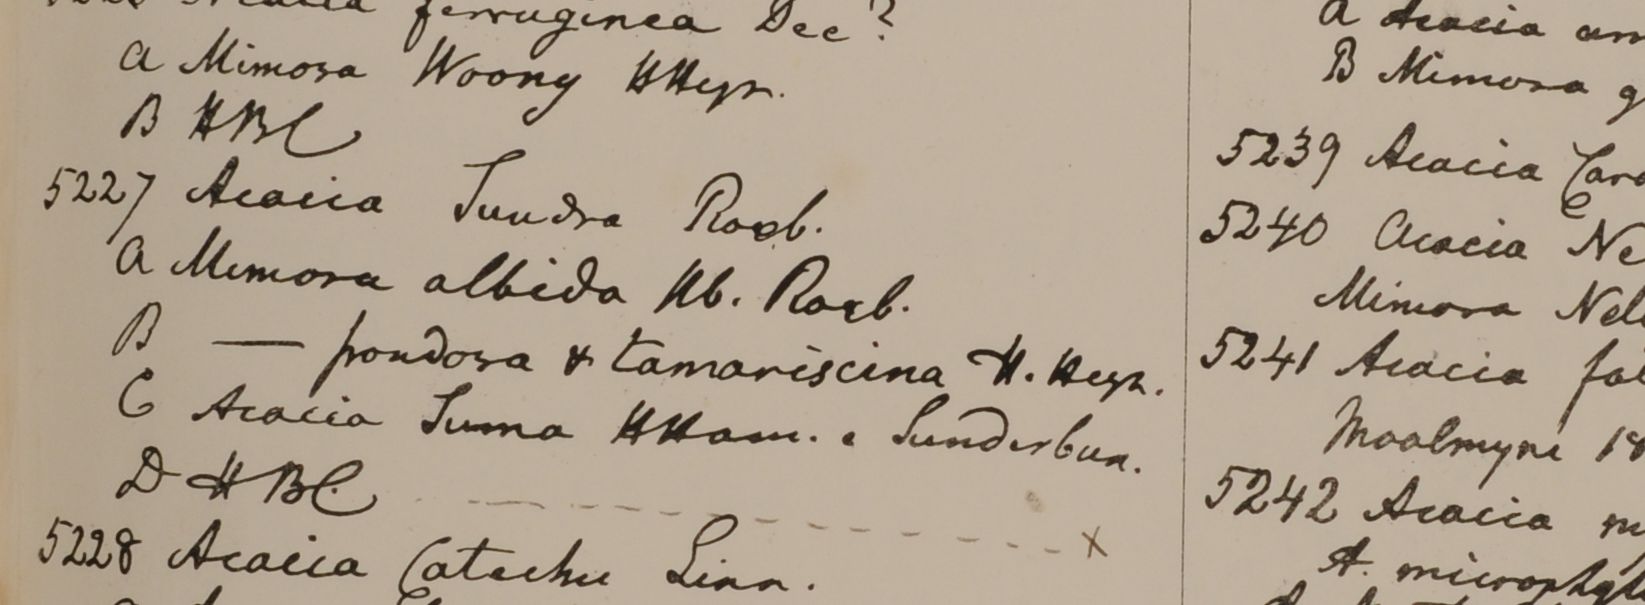 Acacia ferruginea Dec?
a Mimosa Woony HHeyn.
B HBC
5227 Acacia Sundra Roxb.
a Mimosa albida Hb. Roxb.
B — frondosa & tamariscina H. Heyn.
C Acacia Suma HHam. e Sunderbun.
D HBC.
x
5228 Acacia Catechu Linn.
a Acacia
B Mimosa
5239 Acacia
5240 Acacia
Mimosa
5241 Acacia
Moalmyne 18
5242 Acacia
A.